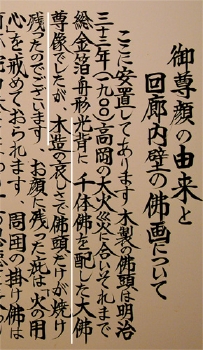 御尊顔の由来と
回廊内壁の佛画について
ここに安置してあります木製の佛頭は明治
三十三年(一九〇〇)高岡の大火災に合いそれまで
総金箔舟形光背に千体佛を配した大佛
尊像でしたが、木造の哀しさ佛頭だけが焼け
残ったのでございます、お顔に残った疵は「火の用
心」を戒めておられます、周囲の掛け佛は